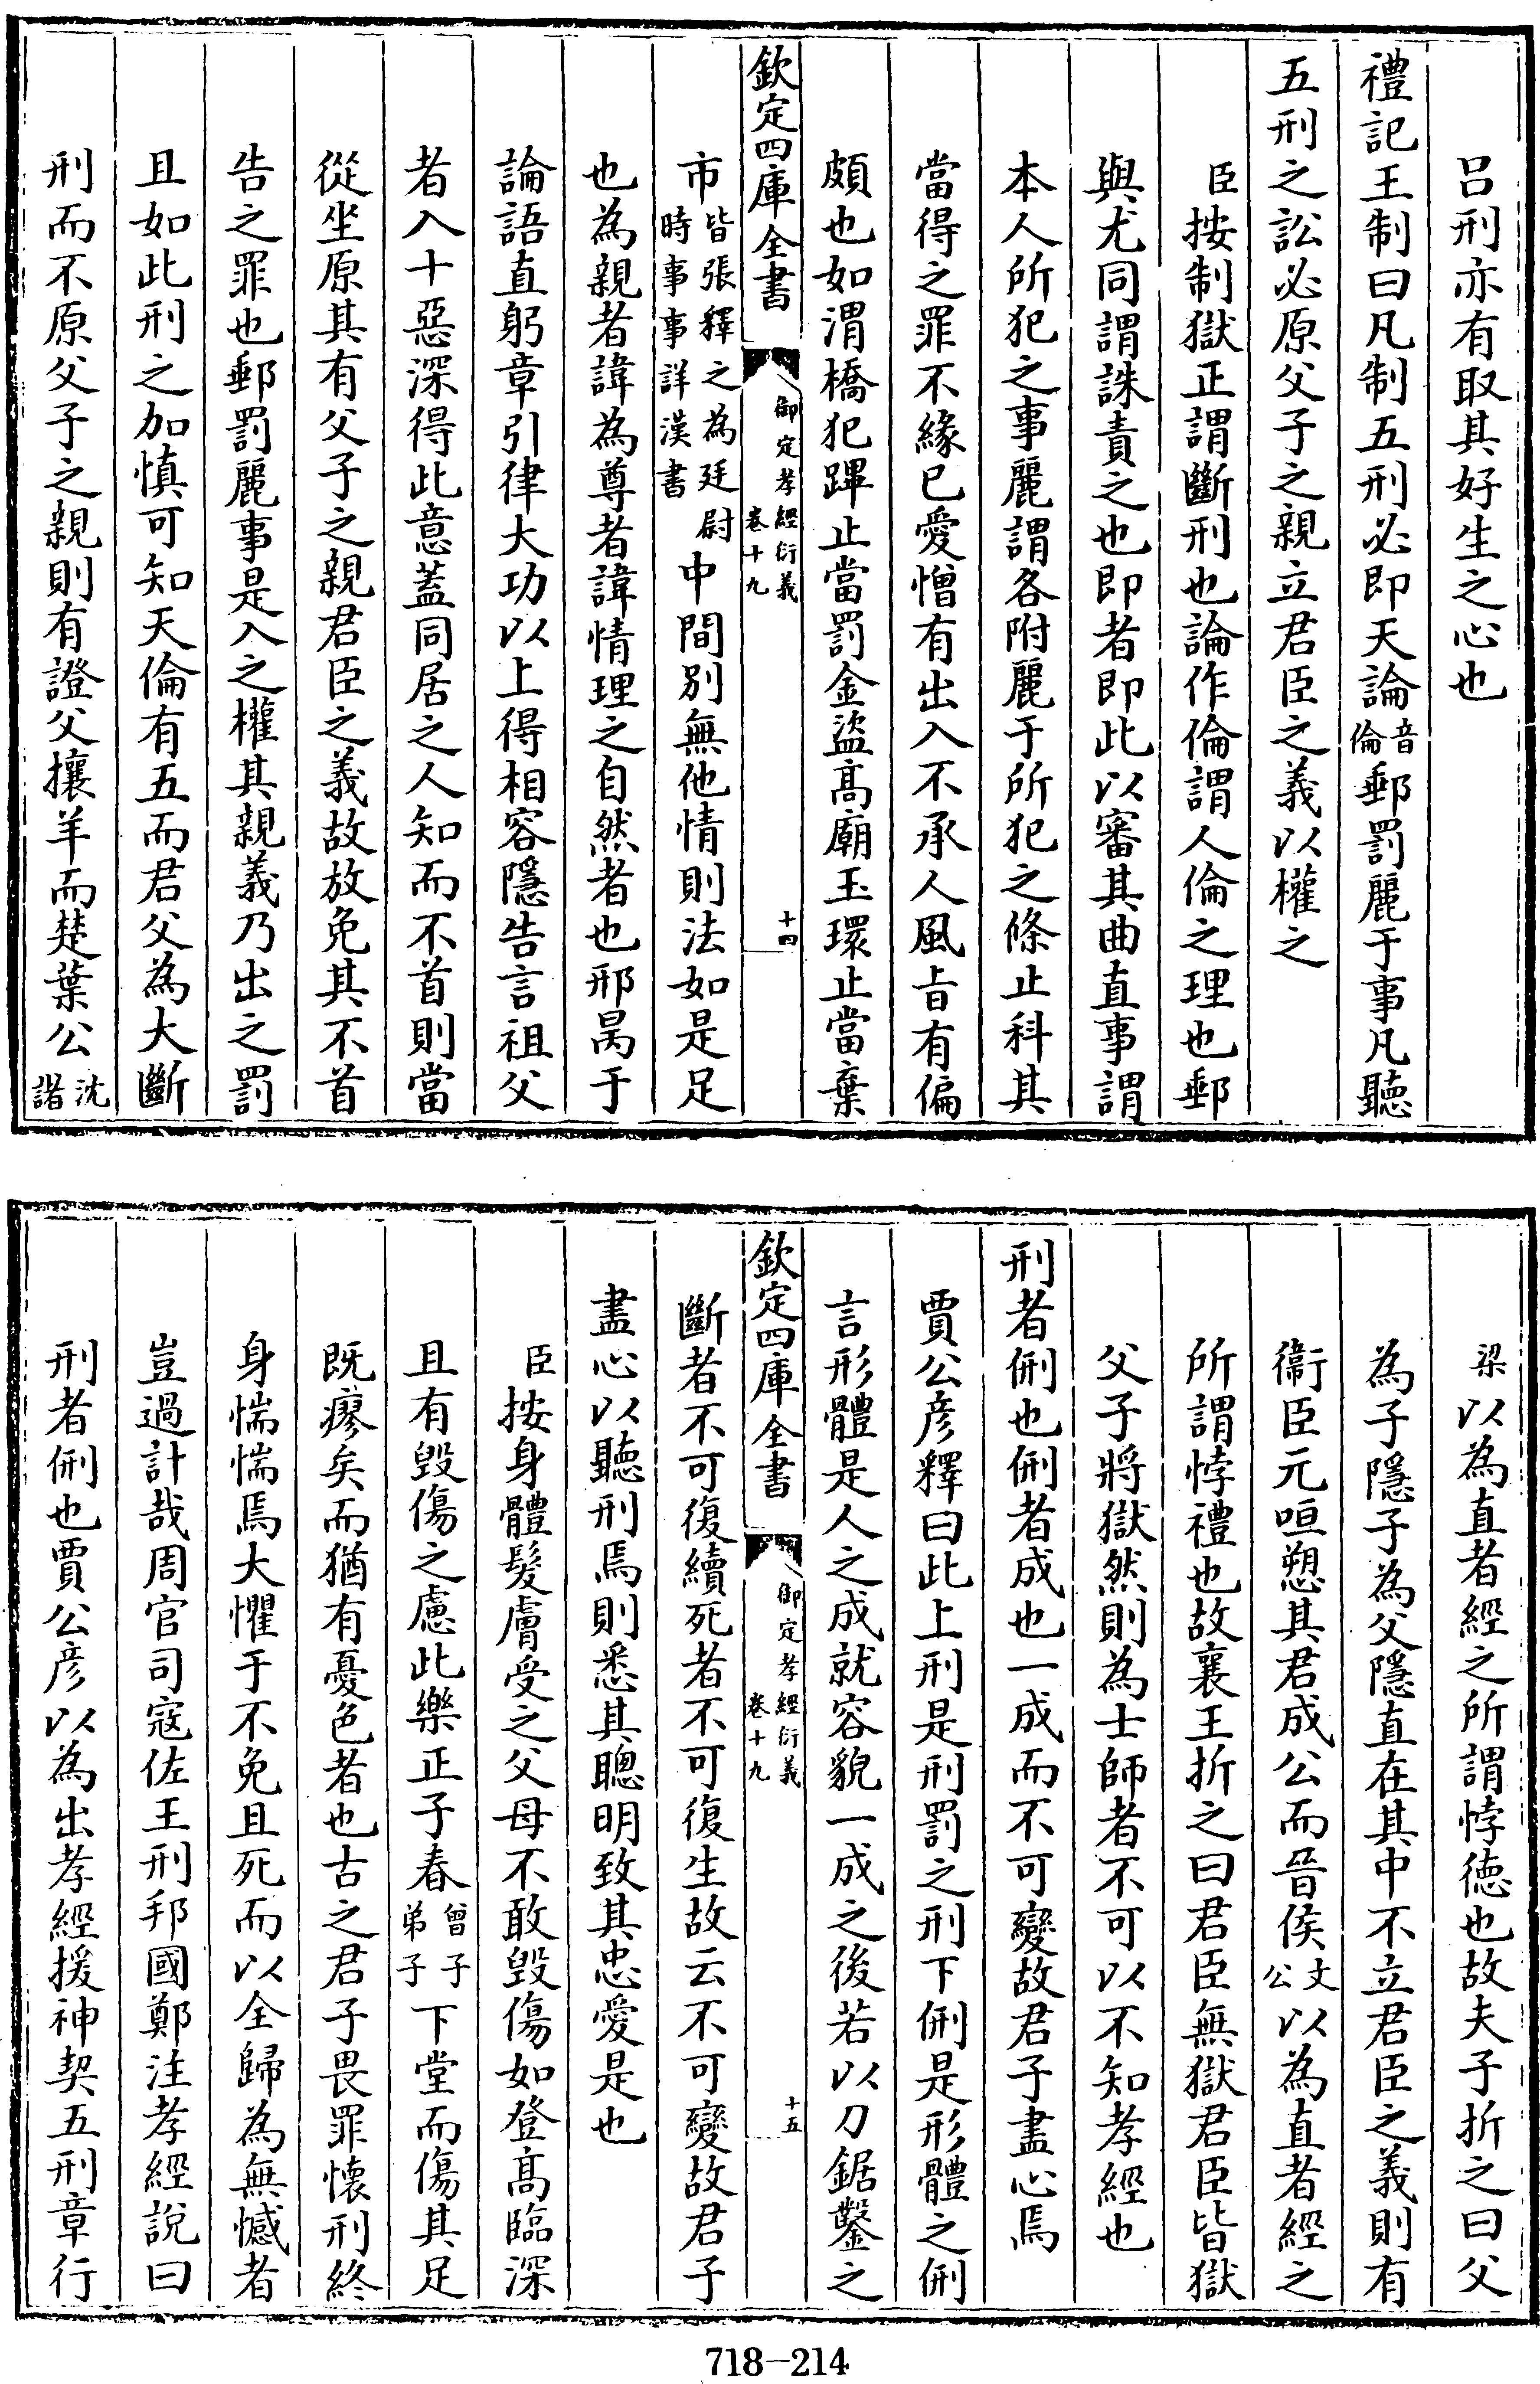 呂刑亦有取其好生之心也
禮記王制曰凡制五刑必即天論音倫郵罰麗于事凡聽
五刑之訟必原父子之親立君臣之義以權之
臣按制獄正謂斷刑也論作倫謂人倫之理也郵
與尤同謂誅責之也即者即此以審其曲直事謂
本人所犯之事麗謂各附麗于所犯之條止科其
當得之罪不緣已愛憎有出入不承人風㫖有偏
頗也如渭橋犯蹕止當罰金盜髙廟玉環止當棄
欽定四庫全書
御定孝經衍義
卷十九
十四
市皆張釋之為廷尉時事事詳漢書中間别無他情則法如是足
也為親者諱為尊者諱情理之自然者也邢昺于
論語直躬章引律大功以上得相容隱告言祖父
者入十惡深得此意蓋同居之人知而不首則當
從坐原其有父子之親君臣之義故放免其不首
告之罪也郵罰麗事是入之權其親義乃出之罰
且如此刑之加慎可知天倫有五而君父為大斷
刑而不原父子之親則有證父攘羊而楚葉公沈諸
梁以為直者經之所謂悖徳也故夫子折之曰父
為子隱子為父隱直在其中不立君臣之義則有
衞臣元咺愬其君成公而晉侯文公以為直者經之
所謂悖禮也故襄王折之曰君臣無獄君臣皆獄
父子將獄然則為士師者不可以不知孝經也
刑者侀也侀者成也一成而不可變故君子盡心焉
賈公彦釋曰此上刑是刑罰之刑下侀是形體之侀
言形體是人之成就容貌一成之後若以刀鋸鑿之
欽定四庫全書
御定孝經衍義
卷十九
十五
斷者不可復續死者不可復生故云不可變故君子
盡心以聽刑焉則悉其聰明致其忠愛是也
臣按身體髮膚受之父母不敢毀傷如登髙臨深
且有毀傷之慮此樂正子春曾子弟子下堂而傷其足
既瘳矣而猶有憂色者也古之君子畏罪懷刑終
身惴惴焉大懼于不免且死而以全歸為無憾者
豈過計哉周官司寇佐王刑邦國鄭注孝經說曰
刑者侀也賈公彦以為出孝經援神契五刑章行
718—214